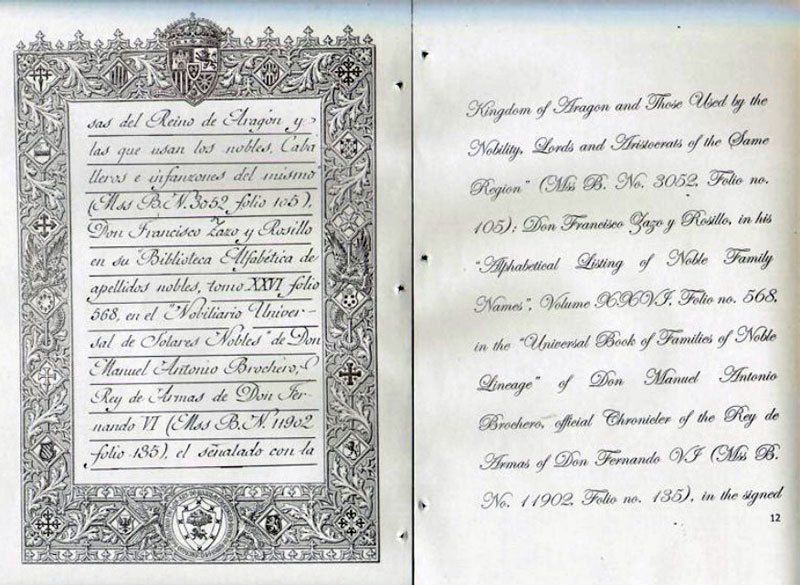 sas del Reino de Aragón y
las que usan los nobles, Caba
lleros e infanzones del mismo"
(Mss B.N. 3052 folio 105),
Don Francisco Zazo y Rosillo
en su Biblioteca Alfabética de
apellidos nobles, tomo XXVI folio
568, en el "Nobiliario Univer-
sal de Solares Nobles" de Don
Manuel Antonio Brochero,
Rey de Armas de Don Fer-
nando VI (Mss B.N. 11902
folio 135), el señalado con la
Kingdom of Aragon and Those Used by the
Nobility, Lords and Aristocrats of the Same
Region" (Mss B. No. 3052, Folio no.
105); Don Francisco Zazo y Rosillo, in his
"Alphabetical Listing of Noble Family
Names", Volume XXVI, Folio no. 568,
in the "Universal Book of Families of Noble
Lineage" of Don Manuel Antonio
Brochero, official Chronicler of the Rey de
Armas of Don Fernando VI (Mss B.
No. 11902, Folio no. 135), in the signed
12